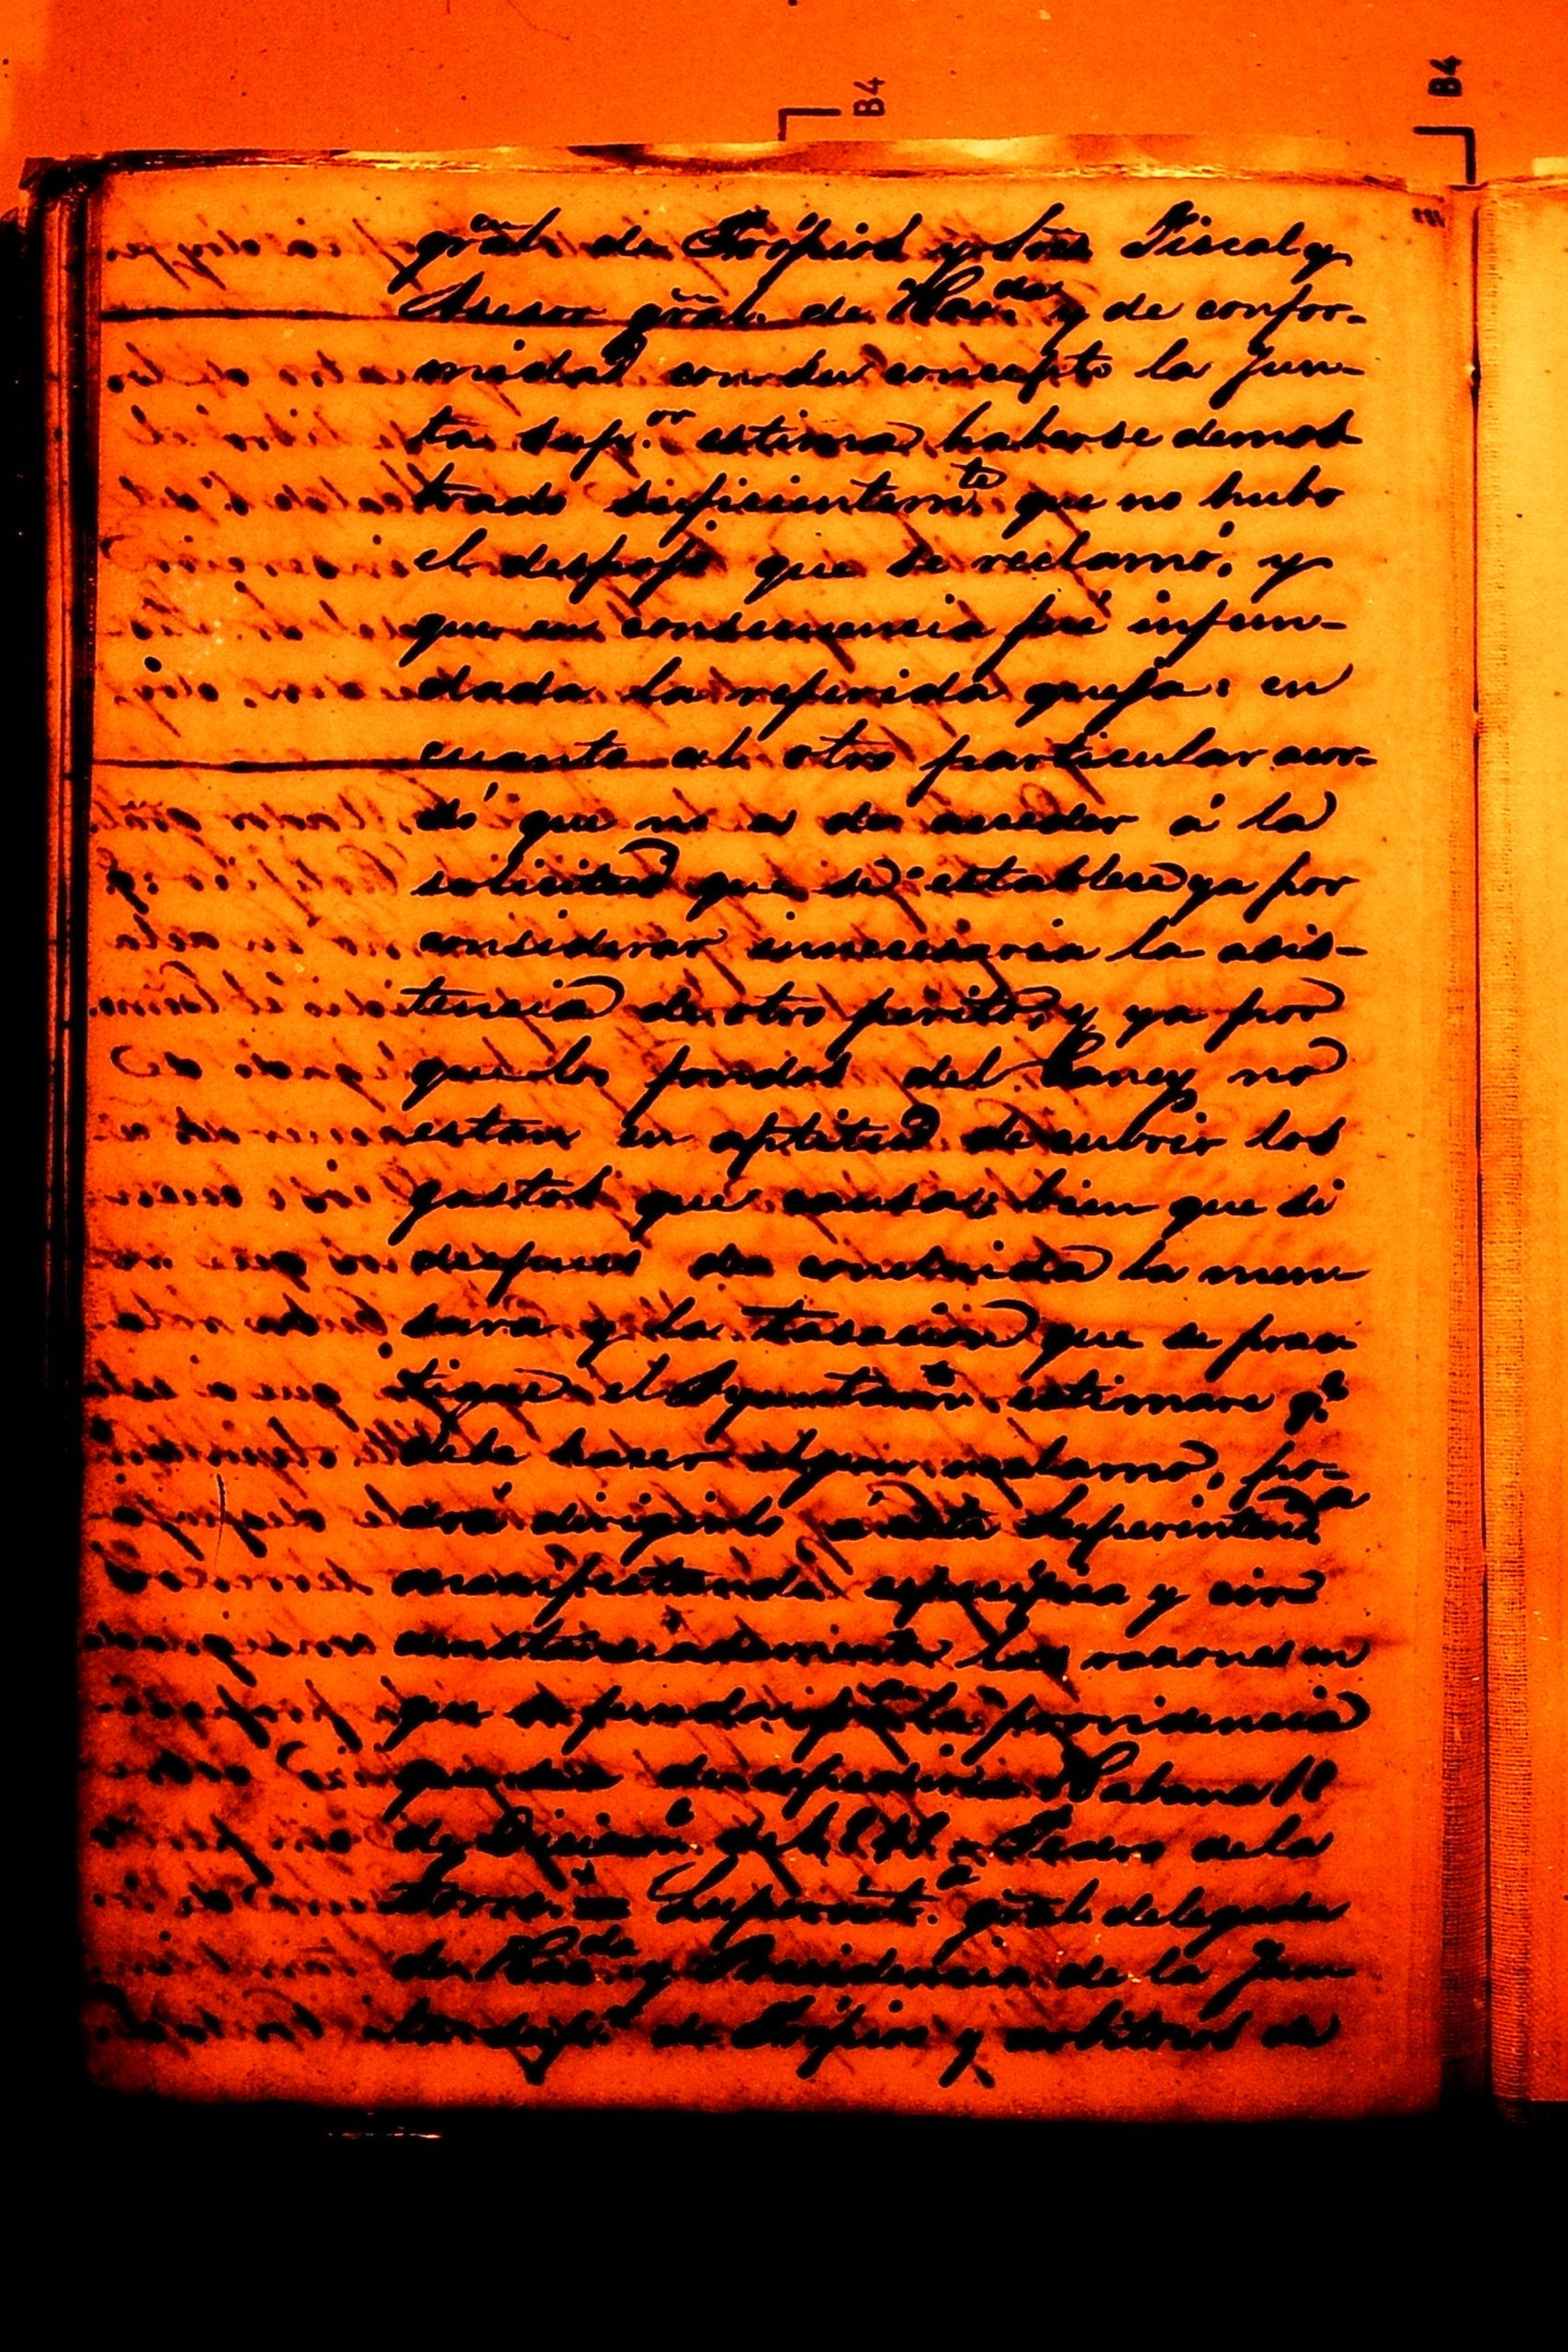 B4
B4
grãl. de Própios y Sres Fiscal y
Asesor grãl. de Hac.da y de confor-
midad con su concepto la Jun-
ta Sup.or estima haberse demos-
trado suficientem.te que no hubo
el despojo que se reclamó, y
que en consecuencia fué infun-
dada la referida queja: en
cuanto al otro particular acor-
dó que no es de acceder á la
solicitud que se establece ya por
considerar innecesaria la asis-
tencia de otro perito, y ya por
que los fondos del Caney no
estan en aptitud de cubrir los
gastos que causas, bien que si
despues de concluida la men
sura y la tasacion que se prac
tique el Ayuntam.to estimare q.e
debe hacer algun reclamo, po-
drá dirigirlo á esta Superintend.a
manifestando específica y cir
cunstanciadamente las razones en
que se funde la providencia
que de expedirse. Habana 11
de Diciem.e de 1841. = Pedro de la
Torre. = Superint.a grãl. delegada
de Hac.da y Presidencia de la Jun
ta sup.or de Própios y arbitrios de